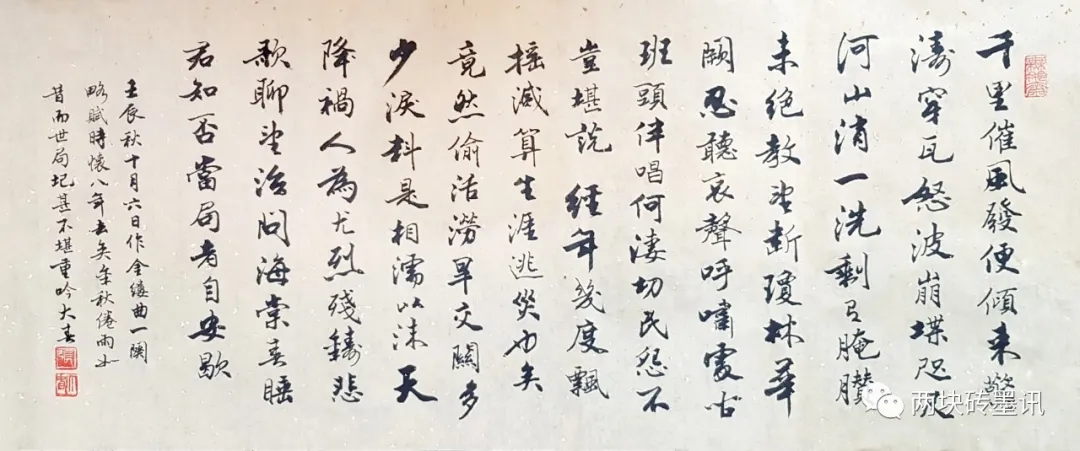 千里催風發便傾來驚
濤穿瓦怒波崩堞咫尺
河山消一洗剩有腌臢
未絕教望斷瓊林華
闕忍聽哀聲呼嘯處占
班頭伴唱何淒切民怨不
豈堪說 經年幾度飄
搖減算生涯逃災也矣
竟然偷活澇旱交關多
少淚料是相濡以沫天
降禍人為尤烈殘鑄悲
歌聊望治問海棠春睡
君知否當局者自安歇
壬辰秋十月六日作金縷曲一闋
略賦時懷八年去矣秋倦雨如
昔而世局圮甚不堪重吟大春
两块砖墨讯